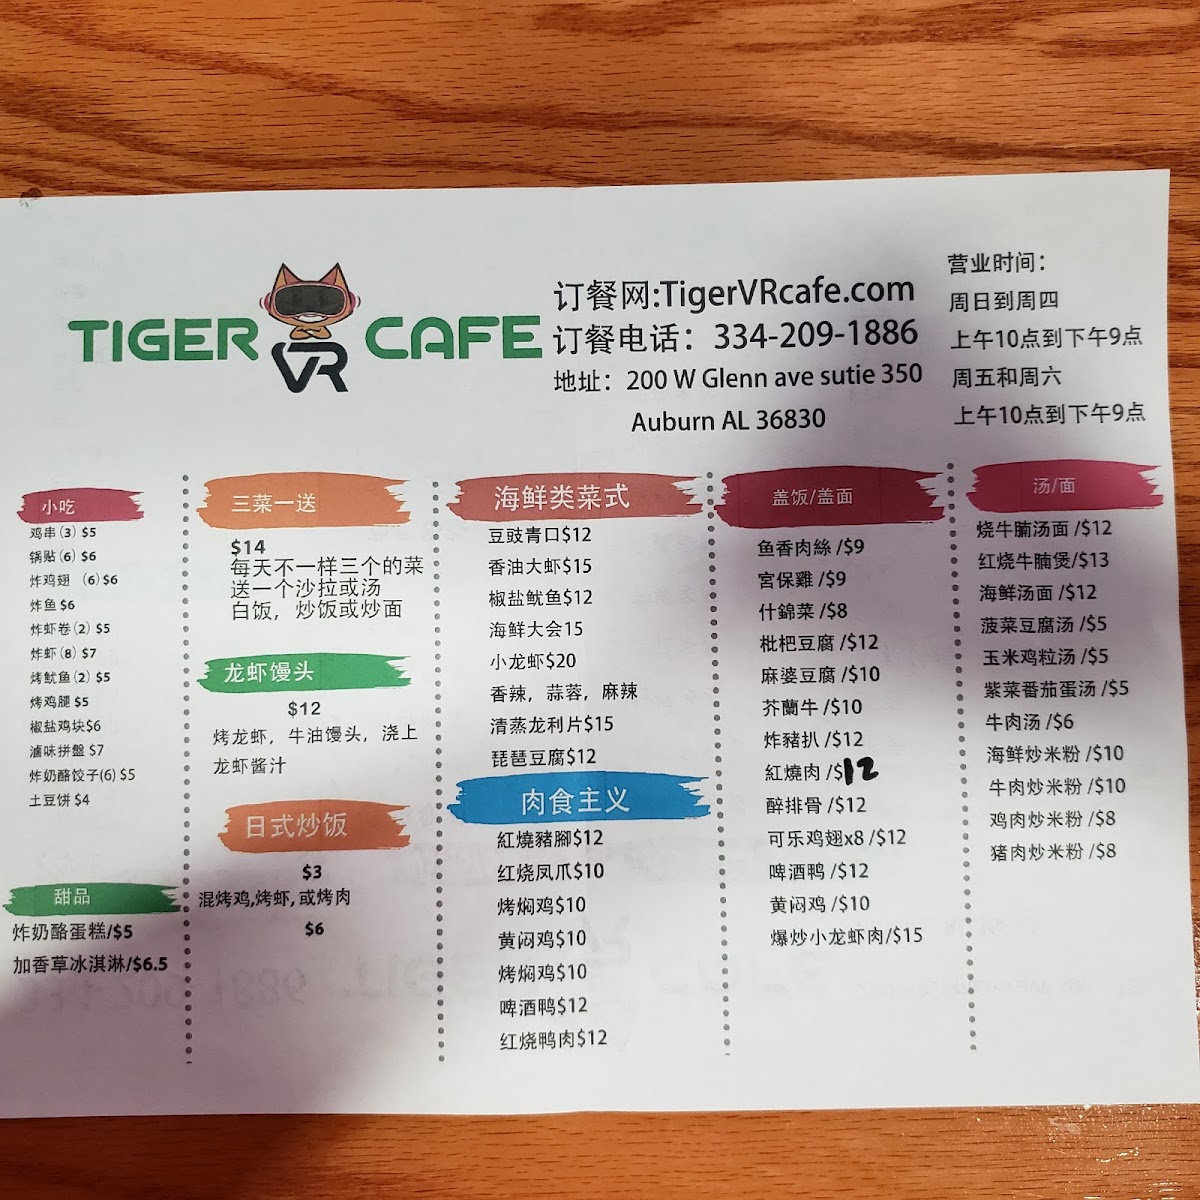 TIGER VR CAFE
订餐网:TigerVRcafe.com
订餐电话：334-209-1886
地址：200 W Glenn ave sutie 350
Auburn AL 36830
营业时间：
周日到周四
上午10点到下午9点
周五和周六
上午10点到下午9点
小吃
鸡串(3) $5
锅贴(6) $6
炸鸡翅 (6)$6
炸鱼$6
炸虾卷(2) $5
炸虾(8) $7
烤鱿鱼(2) $5
烤鸡腿 $5
椒盐鸡块$6
滷味拼盤 $7
炸奶酪饺子(6) $5
土豆饼 $4
甜品
炸奶酪蛋糕/$5
加香草冰淇淋/$6.5
三菜一送
$14
每天不一样三个的菜
送一个沙拉或汤
白饭，炒饭或炒面
龙虾馒头
$12
烤龙虾，牛油馒头，浇上
龙虾酱汁
日式炒饭
$3
混烤鸡,烤虾,或烤肉
$6
海鲜类菜式
豆豉青口$12
香油大虾$15
椒盐鱿鱼$12
海鲜大会15
小龙虾$20
香辣，蒜蓉，麻辣
清蒸龙利片$15
琵琶豆腐$12
肉食主义
紅燒豬腳$12
红烧凤爪$10
烤焖鸡$10
黄闷鸡$10
烤焖鸡$10
啤酒鸭$12
红烧鸭肉$12
盖饭/盖面
鱼香肉絲 /$9
宮保雞 /$9
什錦菜 /$8
枇杷豆腐 /$12
麻婆豆腐 /$10
芥蘭牛 /$10
炸豬扒 /$12
紅燒肉 /$12
醉排骨 /$12
可乐鸡翅x8 /$12
啤酒鸭 /$12
黄闷鸡 /$10
爆炒小龙虾肉/$15
汤/面
烧牛腩汤面 /$12
红烧牛腩煲/$13
海鲜汤面 /$12
菠菜豆腐汤 /$5
玉米鸡粒汤 /$5
紫菜番茄蛋汤 /$5
牛肉汤 /$6
海鲜炒米粉 /$10
牛肉炒米粉 /$10
鸡肉炒米粉 /$8
猪肉炒米粉 /$8